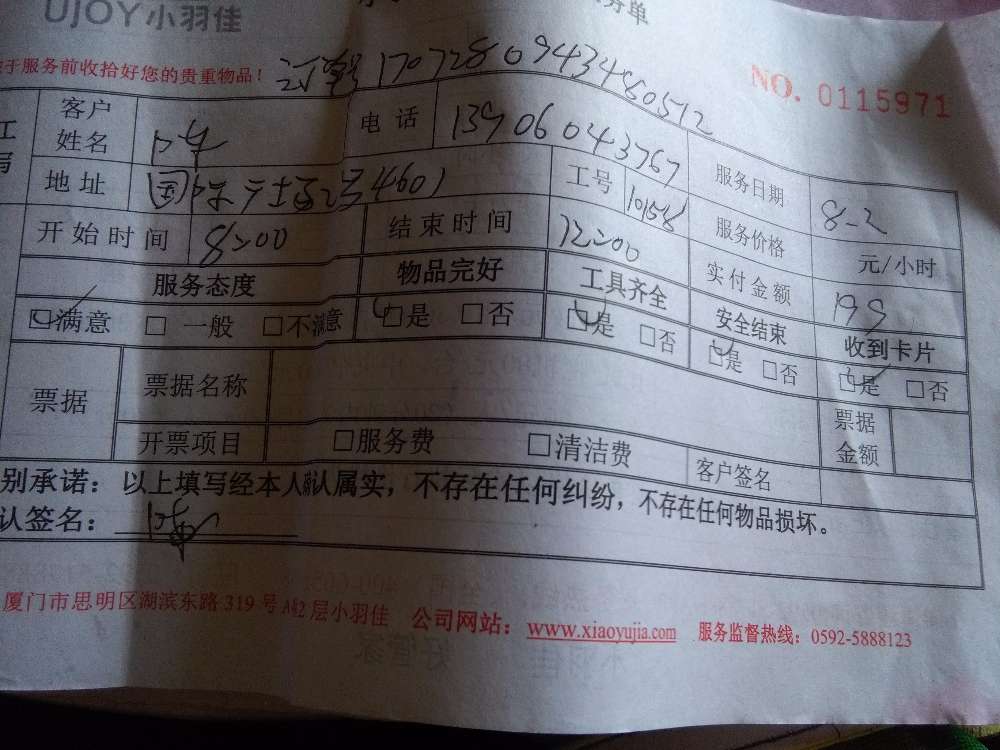 UJOY小羽佳 务单
于服务前收拾好您的贵重物品! 订单号 1707280943480512 NO. 0115971
客户姓名 电话 13906043767 服务日期 8-2
地址 4601 工号 10158 服务价格 元/小时
开始时间 8:00 结束时间 12:00 实付金额 199
服务态度 物品完好 工具齐全 安全结束 收到卡片
□满意 □ 一般 □不满意 □是 □否 □是 □否 □是 □否 □是 □否
票据 票据名称 票据金额
开票项目 □服务费 □清洁费 客户签名
别承诺:以上填写经本人确认属实,不存在任何纠纷,不存在任何物品损坏。
认签名:
厦门市思明区湖滨东路319号A栋2层小羽佳 公司网站:www.xiaoyujia.com 服务监督热线:0592-5888123